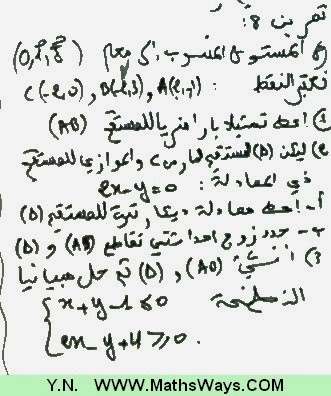 تمرين 8:
في المستوى المنسوب إلى معلم (O,i,j)
نعتبر النقط: A(2,-1) , B(-2,3) , C(-2,0)
① اعط تمثيلا بارامتريا للمستقيم (AB)
2) ليكن (D) المستقيم المار من C والموازي للمستقيم
ذي المعادلة: 2x-y=0
أ- اعط معادلة ديكارتية للمستقيم (D)
ب- حدد زوج احداثيتي تقاطع (AB) و (D)
3) أنشئ (AB) و (D) ثم حل مبيانيا
النظمة x+y-1≤0
2x-y+4≥0.
Y.N. WWW.MathsWays.COM